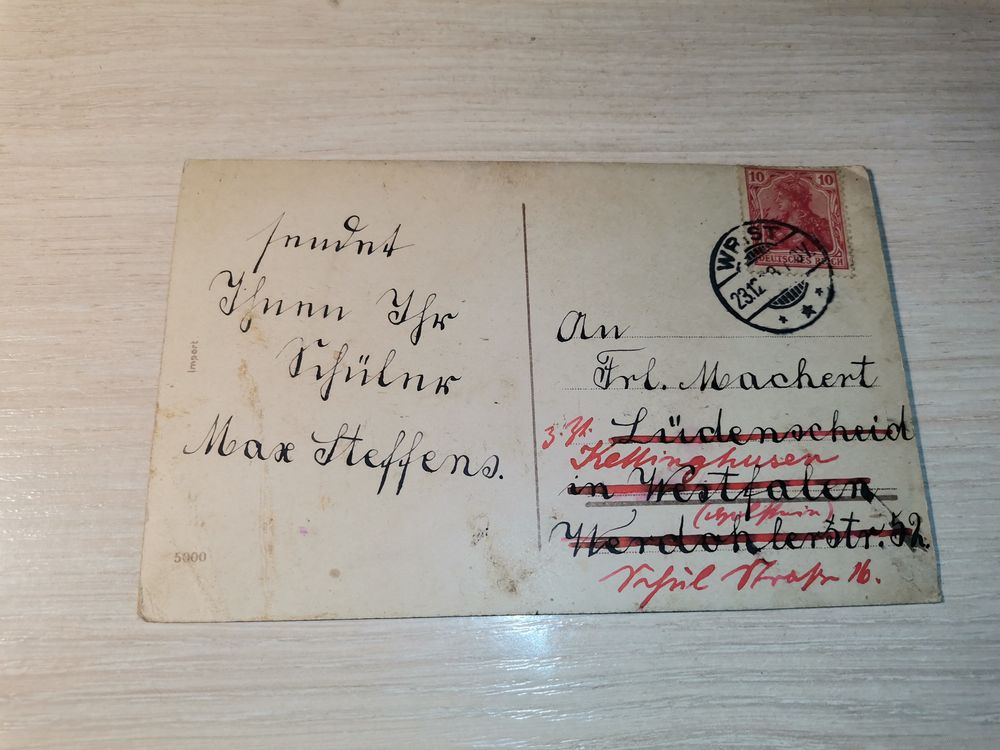 sendet
Ihnen Ihr
Schüler
Max Steffens.
Import
5900
10 10
DEUTSCHES REICH
WRIST
23.12
An
Frl. Machert
Lüdenscheid
z. Zt.
Kellinghusen
in Westfalen
(Holstein)
Werdohlerstr. 52
Schul Straße 16.